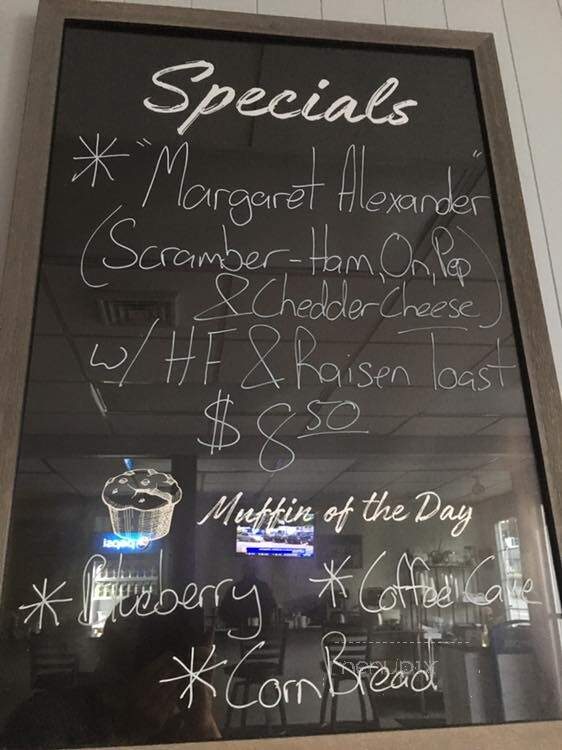 Specials
* "Margaret Alexander"
(Scramber-Ham, On, Pep
& Chedder Cheese)
w/ HF & Raisen Toast
$8.50
Muffin of the Day
* Blueberry * Coffee Cake
* Corn Bread
menupix